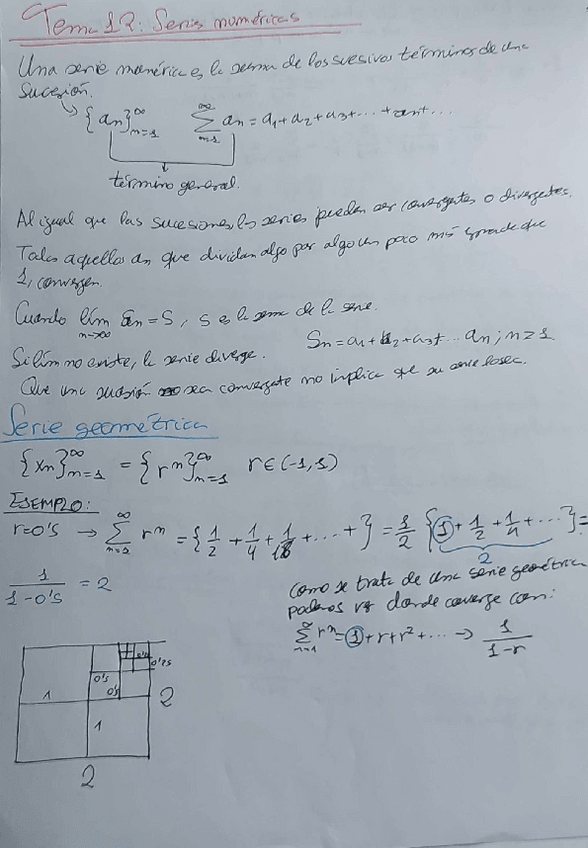 Tema 12: Series numéricas
Una serie numérica es la suma de los sucesivos términos de una
sucesión.
{an}∞n=1 ∞∑n=1 an = a1+a2+a3+...+an+...
término general.
Al igual que las sucesiones, las series pueden ser convergentes o divergentes.
Todas aquellas an que dividan algo por algo un poco más grande que
1, convergen.
Cuando lím n→∞ Sn = S, S es la suma de la serie.
Si lím no existe, la serie diverge. Sn = a1+a2+a3+...an; n≥1.
Que una sucesión sea convergente no implica que su serie lo sea.
Serie geométrica
{xn}∞n=1 = {rⁿ}∞n=1 r∈(-1,1)
EJEMPLO:
r=0's → ∞∑n=1 rⁿ = {1/2 + 1/4 + 1/8 + ... + } = 1/2 {1 + 1/2 + 1/4 + ...} =
2
1/(1-0's) = 2
Como se trata de una serie geométrica
podemos ver donde converge con:
∞∑n=1 rⁿ = 1 + r + r² + ... → 1/(1-r)
0'25
0's
1 0's 2
1
2